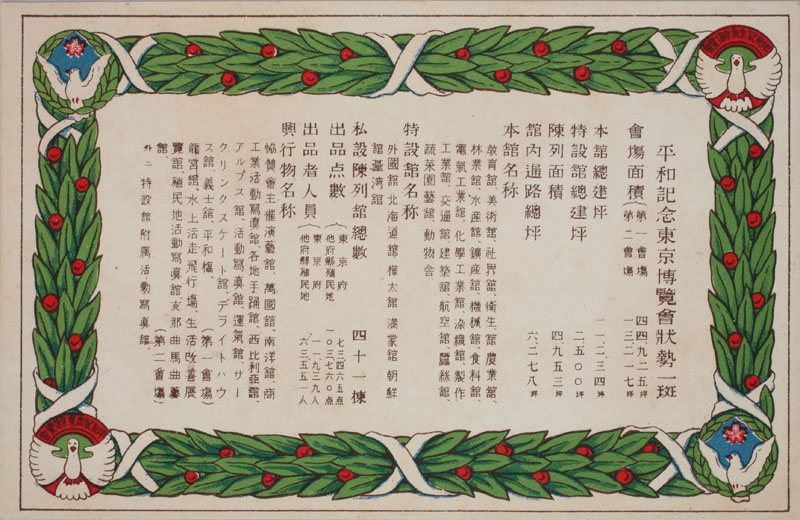 平和記念東京博覽會狀勢一斑
會塲面積(第一會塲 四四、九二五坪
(第二會塲 一三、二一七坪
本館總建坪 一一、二三四坪
特設館總建坪 二、五〇〇坪
陳列面積 四、九五三坪
館内通路總坪 六、二七八坪
本館名称
敎育館、美術館、社界舘、衛生舘、農業舘、
林業舘、水産館、鑛産舘、機械舘、食料舘、
電氣工業舘、化學工業舘、染織舘、製作
工業舘、交通舘、建築舘、航空舘、蠶絲館、
蔬菜園藝舘、動物舎
特設舘名称
外國舘、北海道舘、樺太舘、滿蒙舘、朝鮮
舘、臺湾舘
私設陳列舘總數 四十一棟
出品点數(東京府 七三四六五点
(他府縣殖民地 一〇三、七六〇点
出品者人員(東京府 一一、九三九人
(他府縣殖民地 六三、五五一人
興行物名称
恊賛會主催演藝舘、萬國舘、南洋舘、商
工業活動寫眞舘、各地手踊舘、西比利亞舘、
アルプス舘、活動寫眞舘、運氣舘、サー
クリンクスケート舘、デライトハウ
ス舘、義士舘、平和塔、(第一會塲)
龍宮舘、水上活走飛行塲、生活改善展
覽舘、殖民地活動寫眞舘、支那曲馬曲藝
舘、(第二會塲)
外ニ特設舘附属活動寫眞舘、